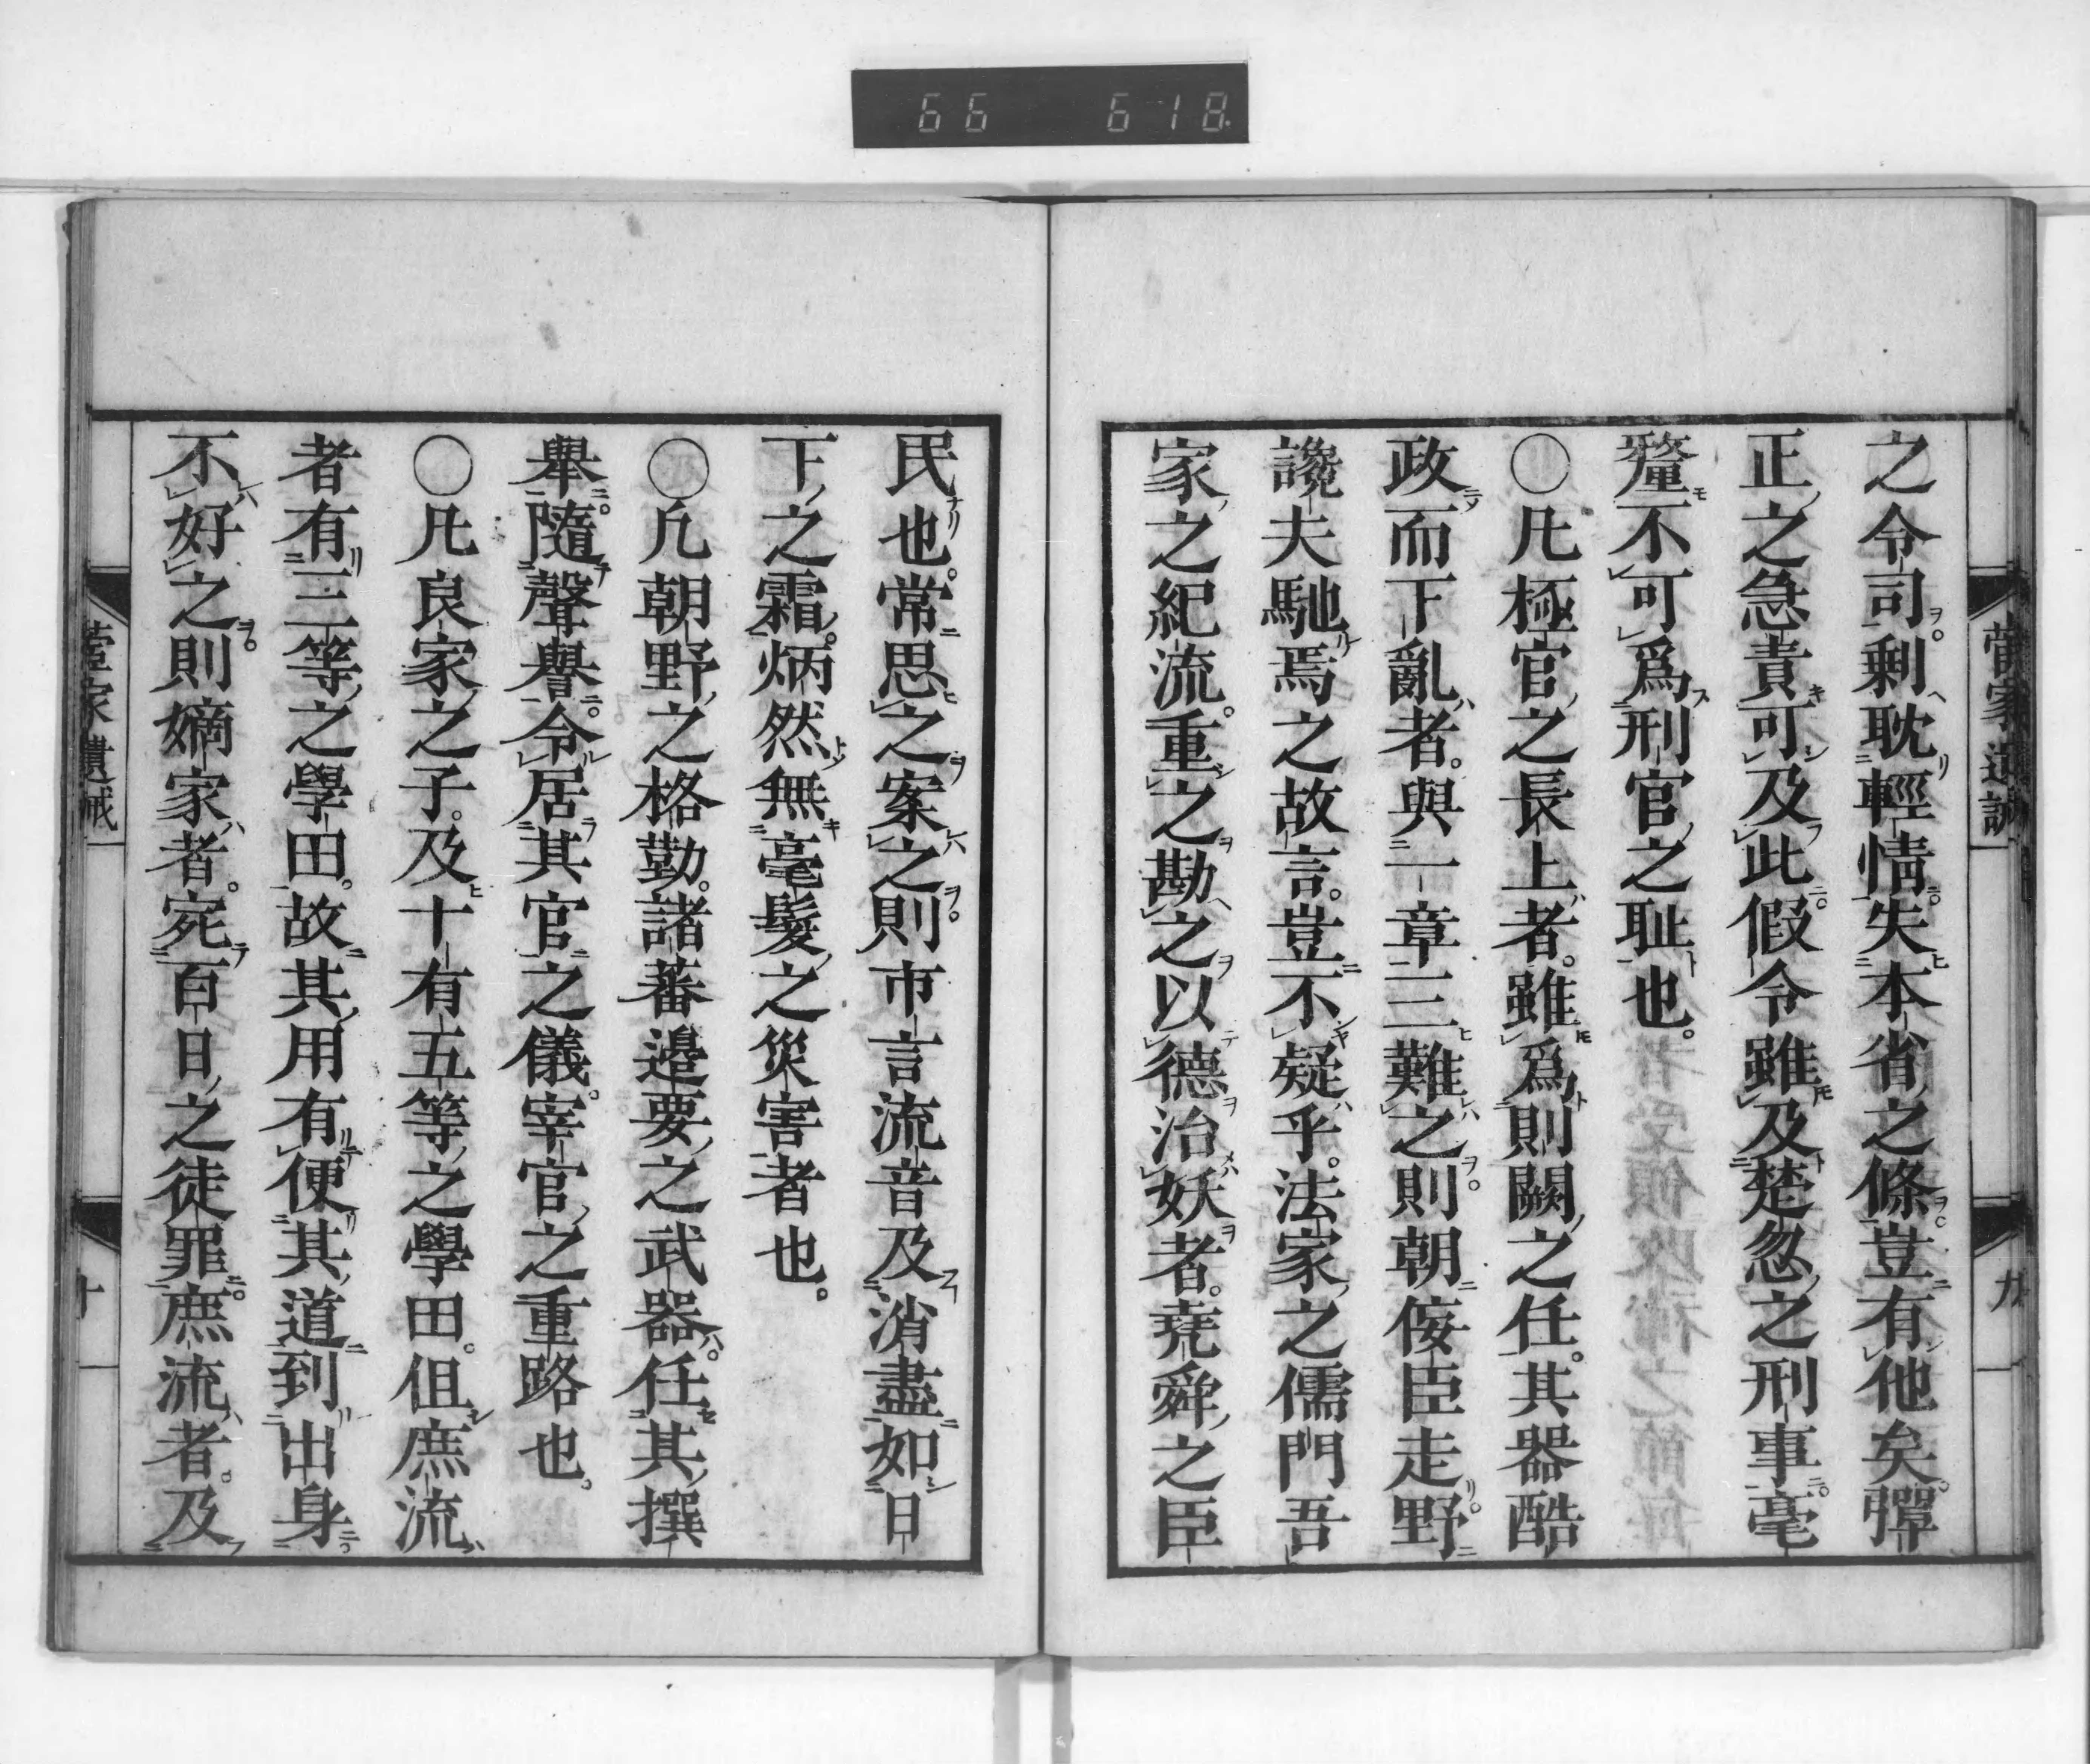 66 618
菅家遺誡
九
之令司剩耽輕情失本省之條豈有他矣彈
正之急責可及此假令雖及楚忽之刑事毫
釐不可爲刑官之耻也
〇凡極官之長上者雖爲則闕之任其器酷
政而下亂者與一章三難之則朝侫臣走野
讒夫馳焉之故言豈不疑乎法家之儒門吾
家之紀流重之勘之以德治妖者堯舜之臣
民也常思之案之則市言流音及消盡如日
下之霜炳然無毫髮之災害者也
〇凡朝野之格勤諸蕃邊要之武器任其撰
舉隨聲譽令居其官之儀宰官之重路也
〇凡良家之子及十有五等之學田但庶流
者有三等之學田故其用有便其道到出身
不好之則嫡家者宛百日之徒罪庶流者及
菅家遺誡
十